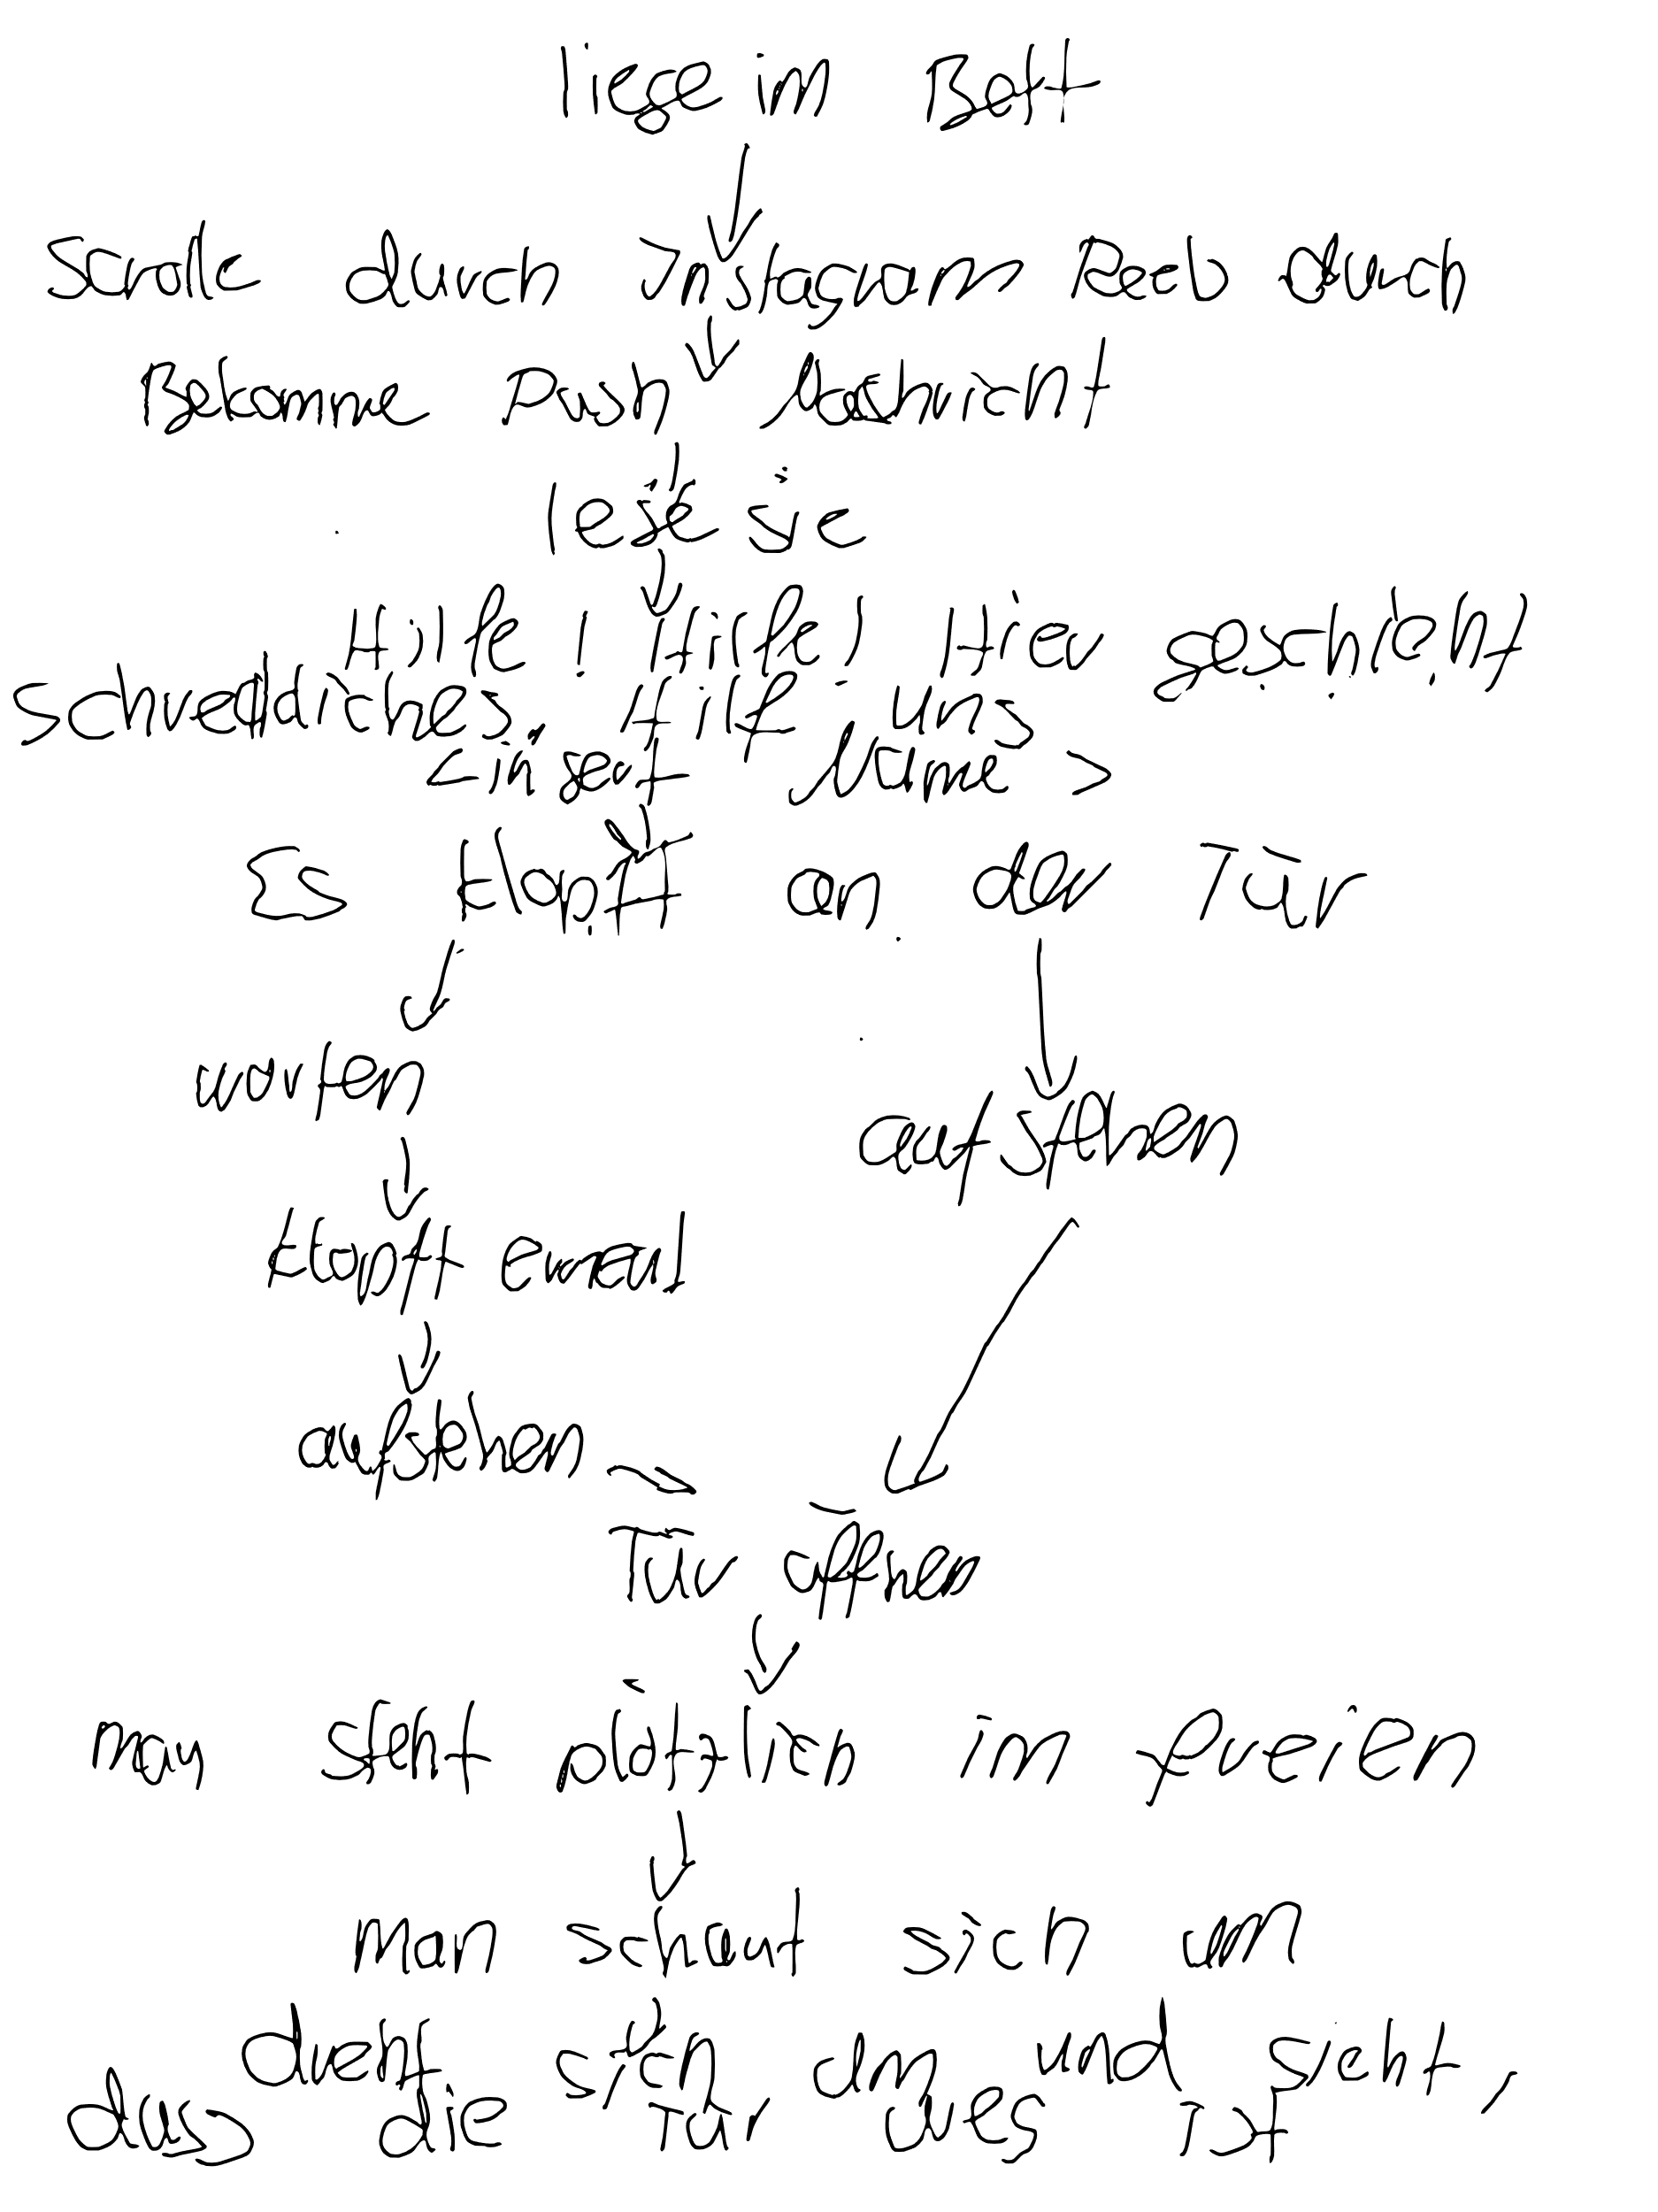 liege im Bett
Scrolle durch Instagram Reels durch
Bekomme Push Nachricht
lese sie
Hilfe! Hilfe! Hier geschieht
schreckliches, Hilf uns
<insert Name>
Es klopft an der Tür
warten
aufstehen
klopft erneut
aufstehen
Tür öffnen
man steht plötzlich im freien
man schaut sich um
dreht sich um und sieht,
dass die Tür weg ist